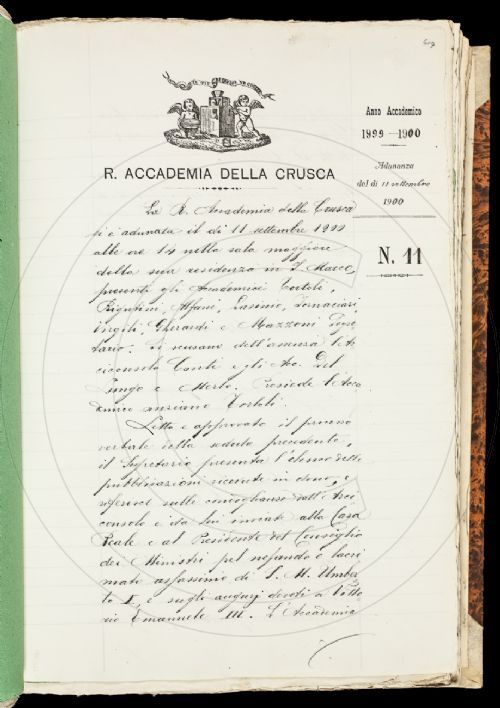 609
Anno Accademico
1899-1900
Adunanza
del dì 11 settembre
1900
N. 11
R. ACCADEMIA DELLA CRUSCA
La R. Accademia della Crusca
si è adunata il dì 11 settembre 1900
alle ore 14 nella sala maggiore
della sua residenza in S. Marco,
presenti gli Accademici Tortoli,
Rigutini, Alfani, Lasinio, Fornaciari,
Virgili, Gherardi e Mazzoni Segre-
tario. Si scusano dell'assenza l'Ar
ciconsolo Conti e gli Acc. Del
Lungo e Merlo. Presiede l'Acca
demico anziano Tortoli.
Letto e approvato il processo
verbale della seduta precedente,
il Segretario presenta l'elenco delle
pubblicazioni ricevute in dono, e
riferisce sulle condoglianze dall'Arci
consolo e da lui inviate alla Casa
Reale e al Presidente del Consiglio
dei Ministri pel nefando e lacri
mato assassinio di S. M. Umber
to I, e sugli augurj devoti a Vitto
rio Emanuele III. L'Accademia